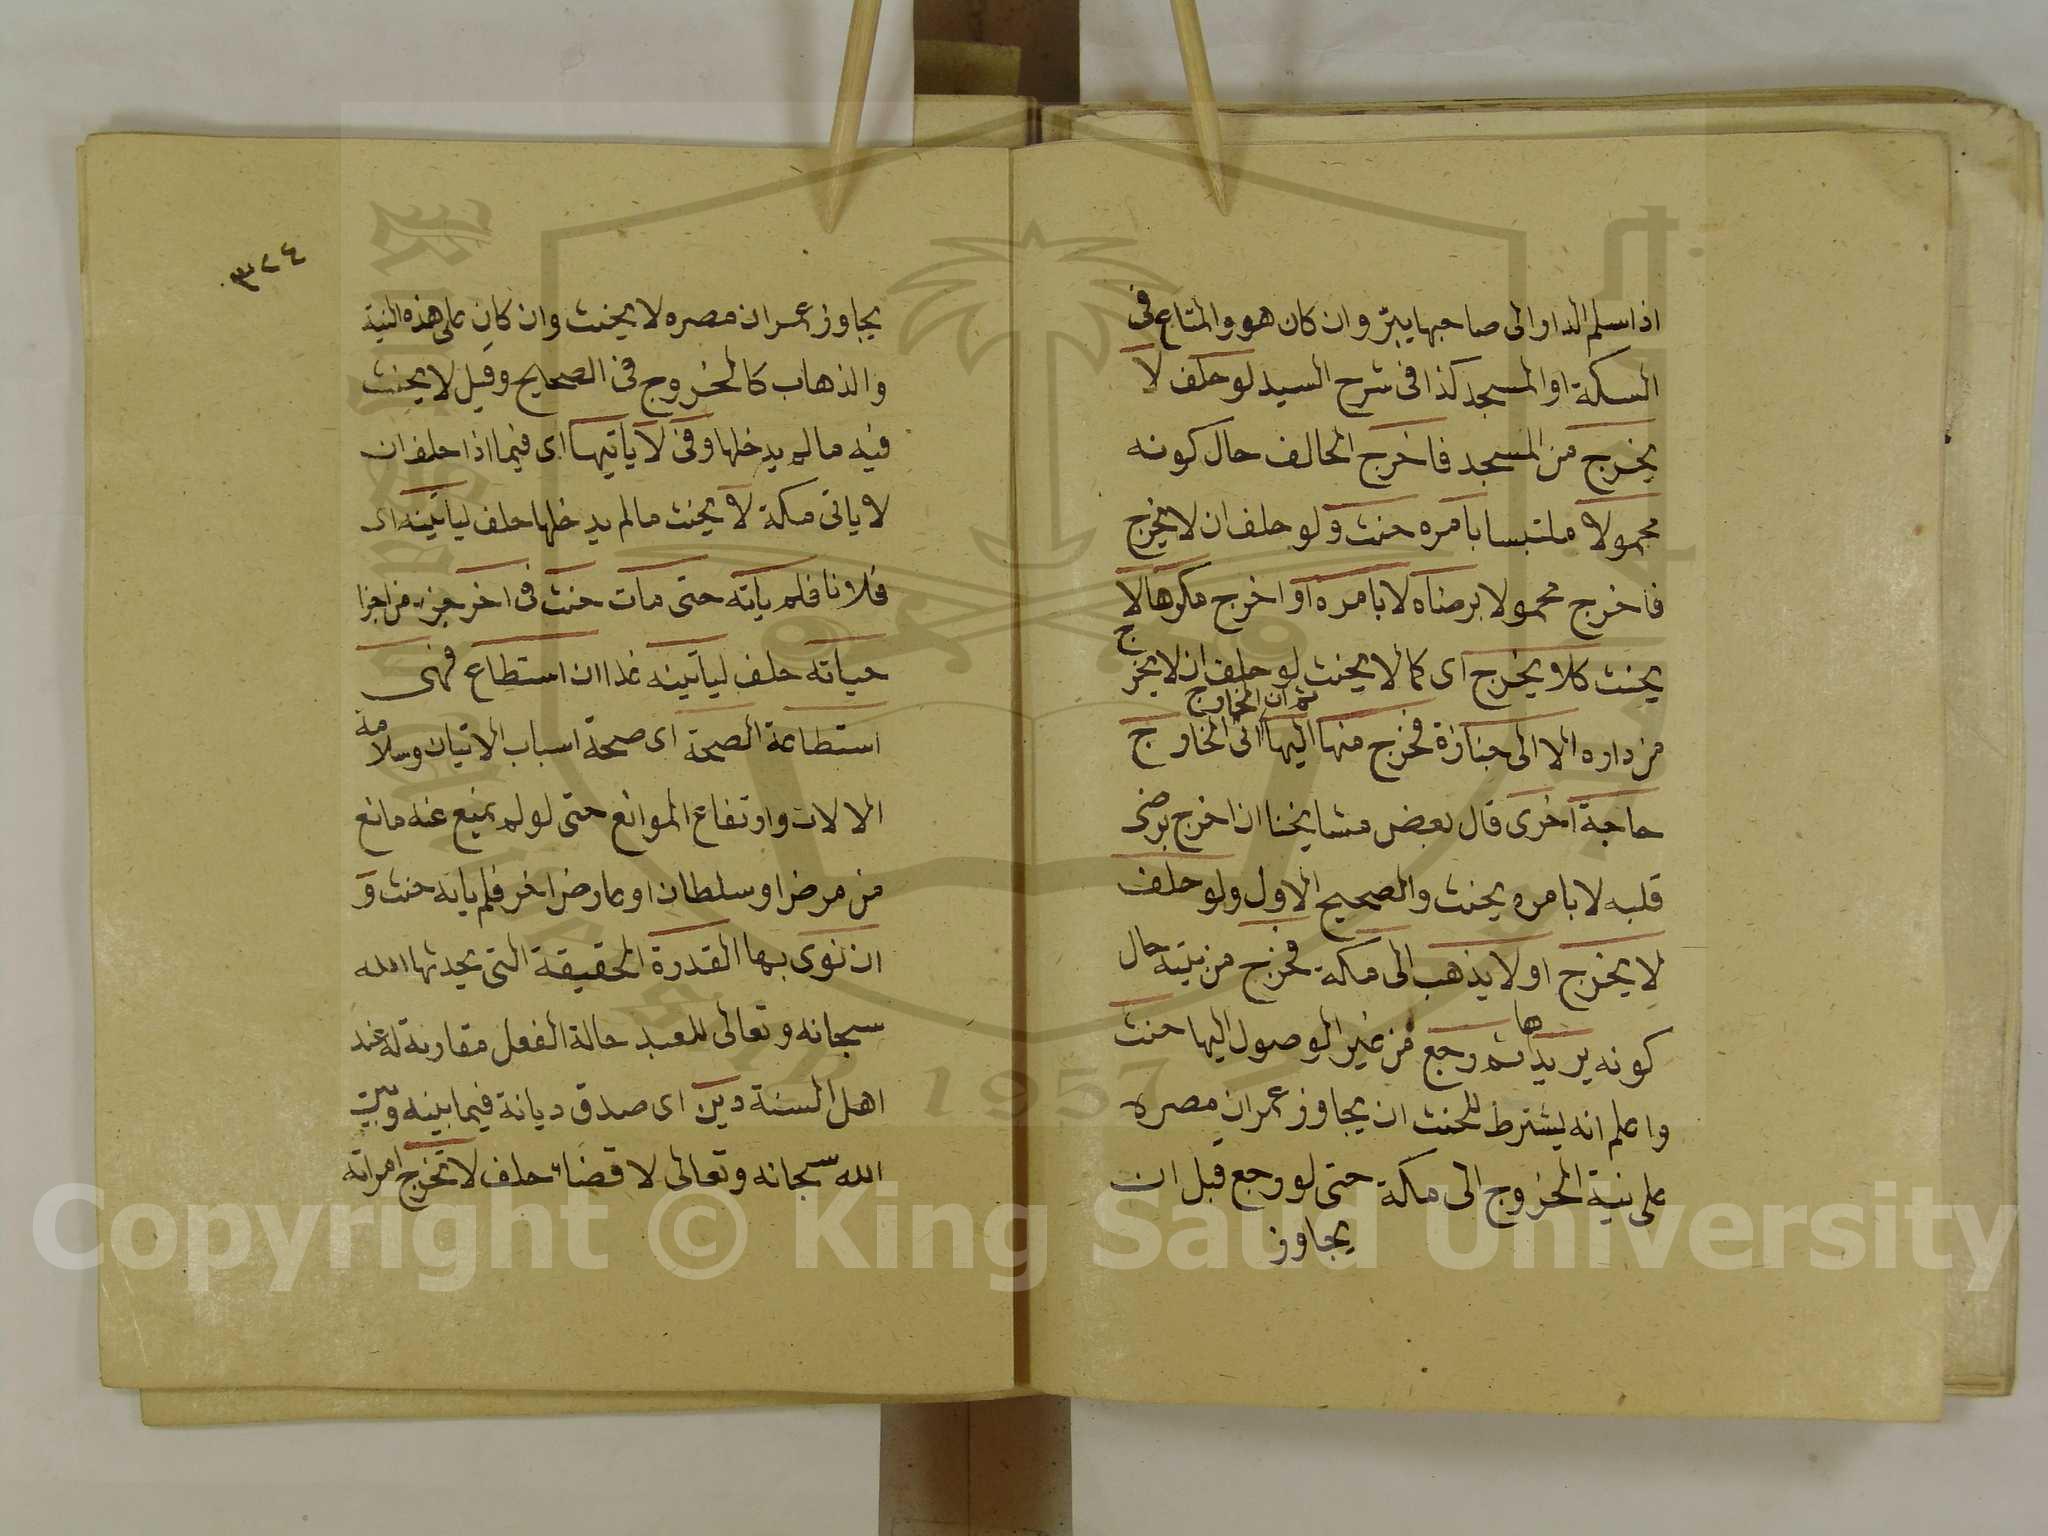 اذا سلم الدار الى صاحبها يبرّ وان كان هو والمتاع فى
السكة او المسجد كذا فى شرح السيد لو حلف لا
يخرج من المسجد فاخرج الحالف حال كونه
محمولا ملتبسا بامره حنث ولو حلف ان لا يخرج
فاخرج محمولا برضاه لا بامره او اخرج مكرها لا
يحنث كلا يخرج اى كما لا يحنث لو حلف ان لا يخرج
من داره الا الى جنازة فخرج منها اليها ثم ان الخارج اتى الخارج
حاجة اخرى قال بعض مشايخنا ان اخرج برضى
قلبه لا بامره يحنث والصحيح الاول ولو حلف
لا يخرج او لا يذهب الى مكة فخرج من بيته حال
كونه يريدها ثم رجع من غير الوصول اليها حنث
واعلم انه يشترط للحنث ان يجاوز عمران مصره
على نية الخروج الى مكة حتى لو رجع قبل ان
يجاوز
٣٢٤
يجاوز عمران مصره لا يحنث وان كان على هذه النية
والذهاب كالخروج فى الصحيح وقيل لا يحنث
فيه ما لم يدخلها وفى لا ياتيها اى فيما اذا حلف ان
لا ياتى مكة لا يحنث ما لم يدخلها حلف لياتينه اى
فلانا فلم ياته حتى مات حنث فى اخر جزء من اجزا
حياته حلف لياتينه غدا ان استطاع فهى
استطاعة الصحة اى صحة اسباب الاتيان وسلامة
الالات وارتفاع الموانع حتى لو لم يمنع عنه مانع
من مرض او سلطان او عارض اخر فلم ياته حنث و
ان نوى بها القدرة الحقيقة التى يحدثها الله
سبحانه وتعالى للعبد حالة الفعل مقارنة له عند
اهل السنة دين اى صدق ديانة فيما بينه وبين
الله سبحانه وتعالى لا قضاء حلف لا تخرج امراته
Copyright © King Saud University
1957